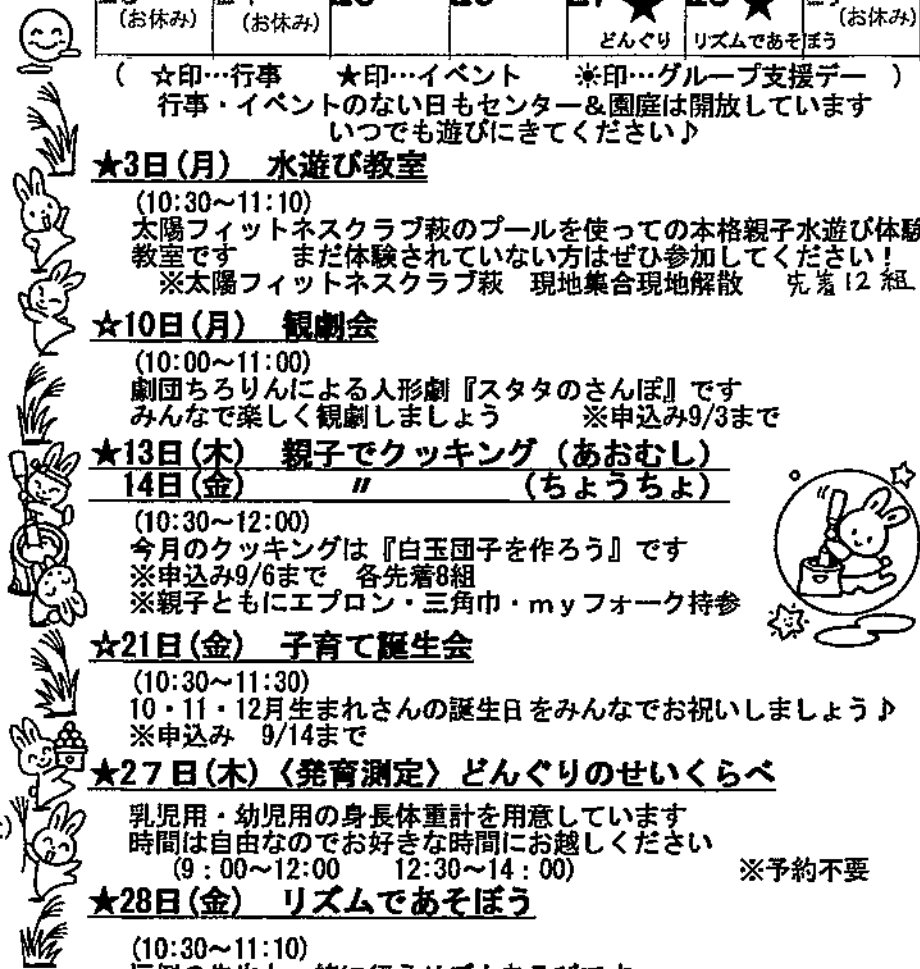 (お休み) (お休み) (お休み)
どんぐり リズムであそぼう
( ☆印…行事 ★印…イベント ☀印…グループ支援デー )
行事・イベントのない日もセンター&園庭は開放しています
いつでも遊びにきてください♪
★3日(月) 水遊び教室
(10:30~11:10)
太陽フィットネスクラブ萩のプールを使っての本格親子水遊び体験
教室です まだ体験されていない方はぜひ参加してください!
※太陽フィットネスクラブ萩 現地集合現地解散 先着12組
☆10日(月) 観劇会
(10:00~11:00)
劇団ちろりんによる人形劇『スタタのさんぽ』です
みんなで楽しく観劇しましょう ※申込み9/3まで
★13日(木) 親子でクッキング(あおむし)
14日(金) 〃 (ちょうちょ)
(10:30~12:00)
今月のクッキングは『白玉団子を作ろう』です
※申込み9/6まで 各先着8組
※親子ともにエプロン・三角巾・myフォーク持参
☆21日(金) 子育て誕生会
(10:30~11:30)
10・11・12月生まれさんの誕生日をみんなでお祝いしましょう♪
※申込み 9/14まで
★27日(木)〈発育測定〉どんぐりのせいくらべ
乳児用・幼児用の身長体重計を用意しています
時間は自由なのでお好きな時間にお越しください
(9:00~12:00 12:30~14:00) ※予約不要
★28日(金) リズムであそぼう
(10:30~11:10)